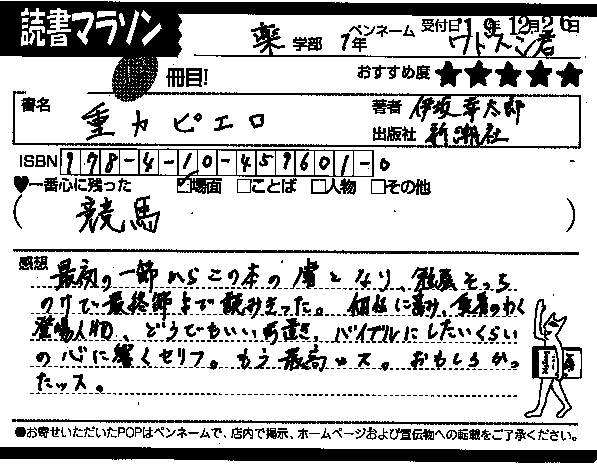 読書マラソン
薬 学部 1年 ペンネーム 受付日'19年12月26日
ワトスン君
冊目! おすすめ度★★★★★
書名 重力ピエロ 著者 伊坂幸太郎
出版社 新潮社
ISBN 978-4-10-459601-0
♥一番心に残った ☑場面 □ことば □人物 □その他
(競馬)
感想 最初の一節からこの本の虜となり、勉強そっち
のけで最終節まで読みきった。個性に富み、愛着のわく
登場人物、どうでもいい 前置き、バイブルにしたいくらい
の心に響くセリフ。もう最高ッス。おもしろかっ
たッス。
●お寄せいただいたPOPはペンネームで、店内で掲示、ホームページおよび宣伝物への転載をご了承ください。